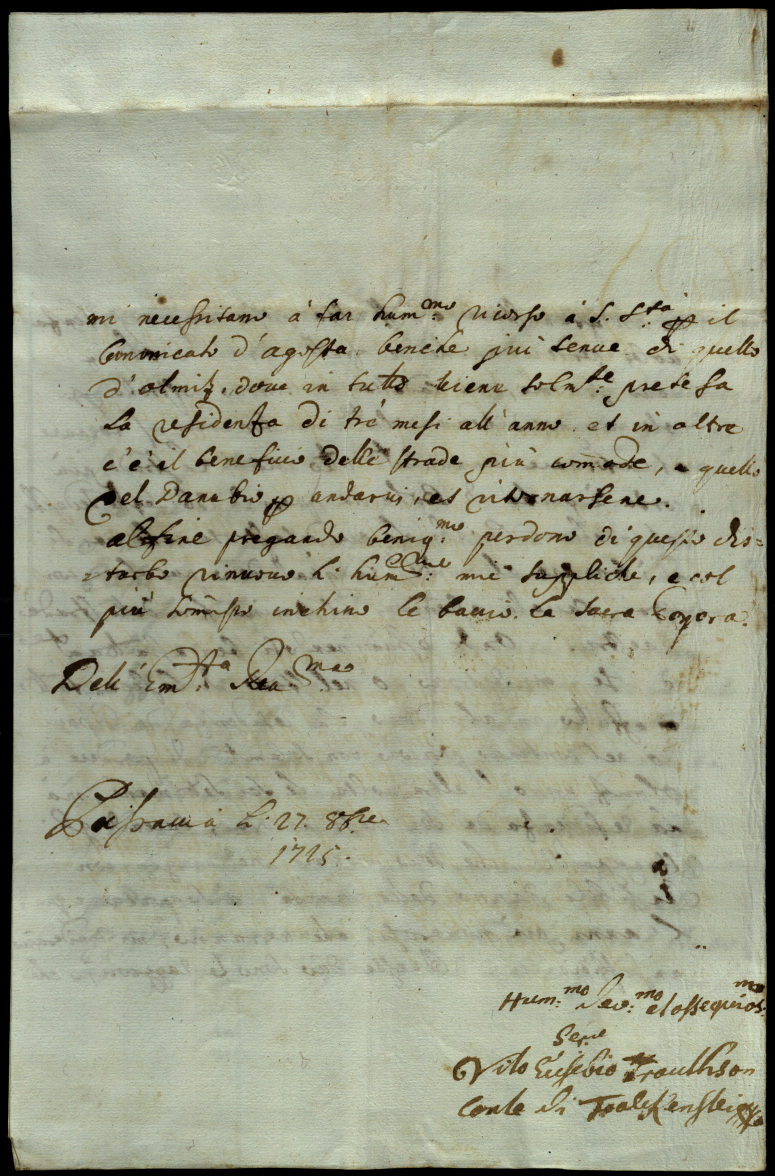 mi necessitano à far hum.mo ricorso à S. S.tà p il
Canonicato d'agosta benche più tenue di quello
d'olmitz, dove in tutto viene solm.te pretesa
la residenza di trè mesi all'anno et in oltre
c'è il beneficio delle strade più com̃ode, e quello
del Danubio p andarvi, et ritornarsene.
alfine pregando benig.mo perdono di questo dis=
=turbo rinuovo l' hum.me mie suppliche, e col
più som̃esso inchino le bacio la sacra Porpora.
Dell' Em.za Rev.ma
Passavia l. 27. 8bre
1725.
Hum.mo Dev.mo et ossequios.mo
Ser.e
Vito Eusebio Trauthson
Conte di Falckenstein